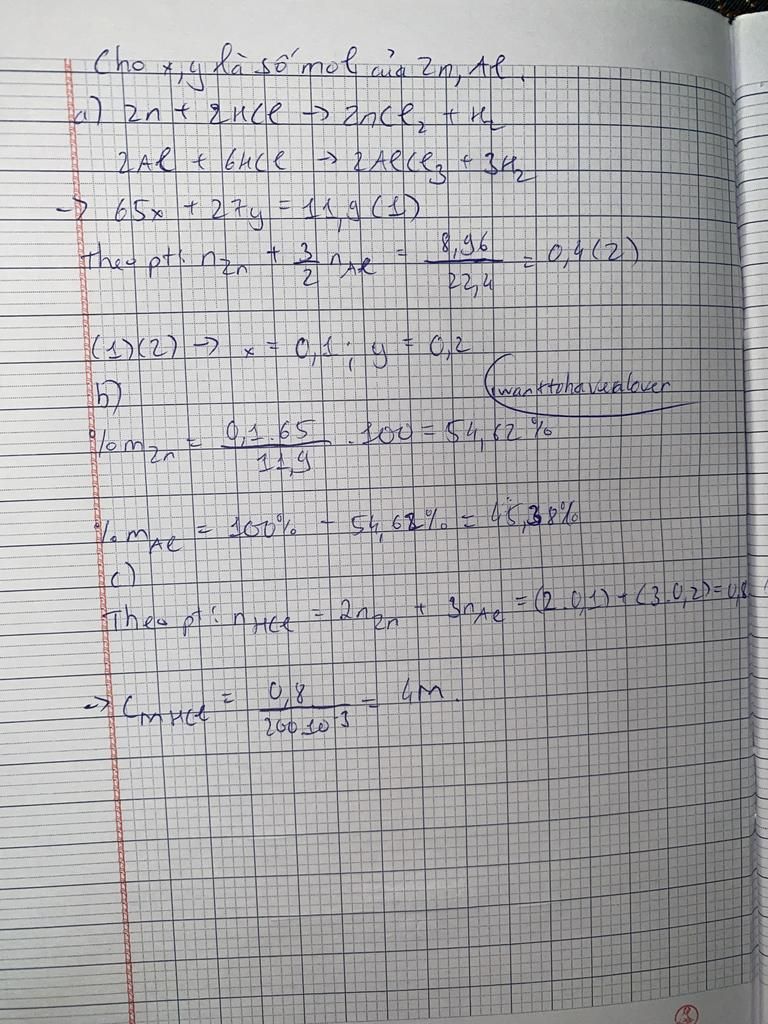 Cho x, y là số mol của Zn, Al.
a) Zn + 2HCl → ZnCl₂ + H₂
2Al + 6HCl → 2AlCl₃ + 3H₂
→ 65x + 27y = 11,9 (1)
Theo pt: nZn + 3/2 nAl = 8,96/22,4 = 0,4 (2)
(1)(2) → x = 0,1 ; y = 0,2
iwanttohavealover
b)
%mZn = 0,1.65/11,9 .100 = 54,62%
%mAl = 100% - 54,62% = 45,38%
c)
Theo pt: nHCl = 2nZn + 3nAl = (2.0,1) + (3.0,2) = 0,8
→ CM HCl = 0,8/200.10⁻³ = 4M.